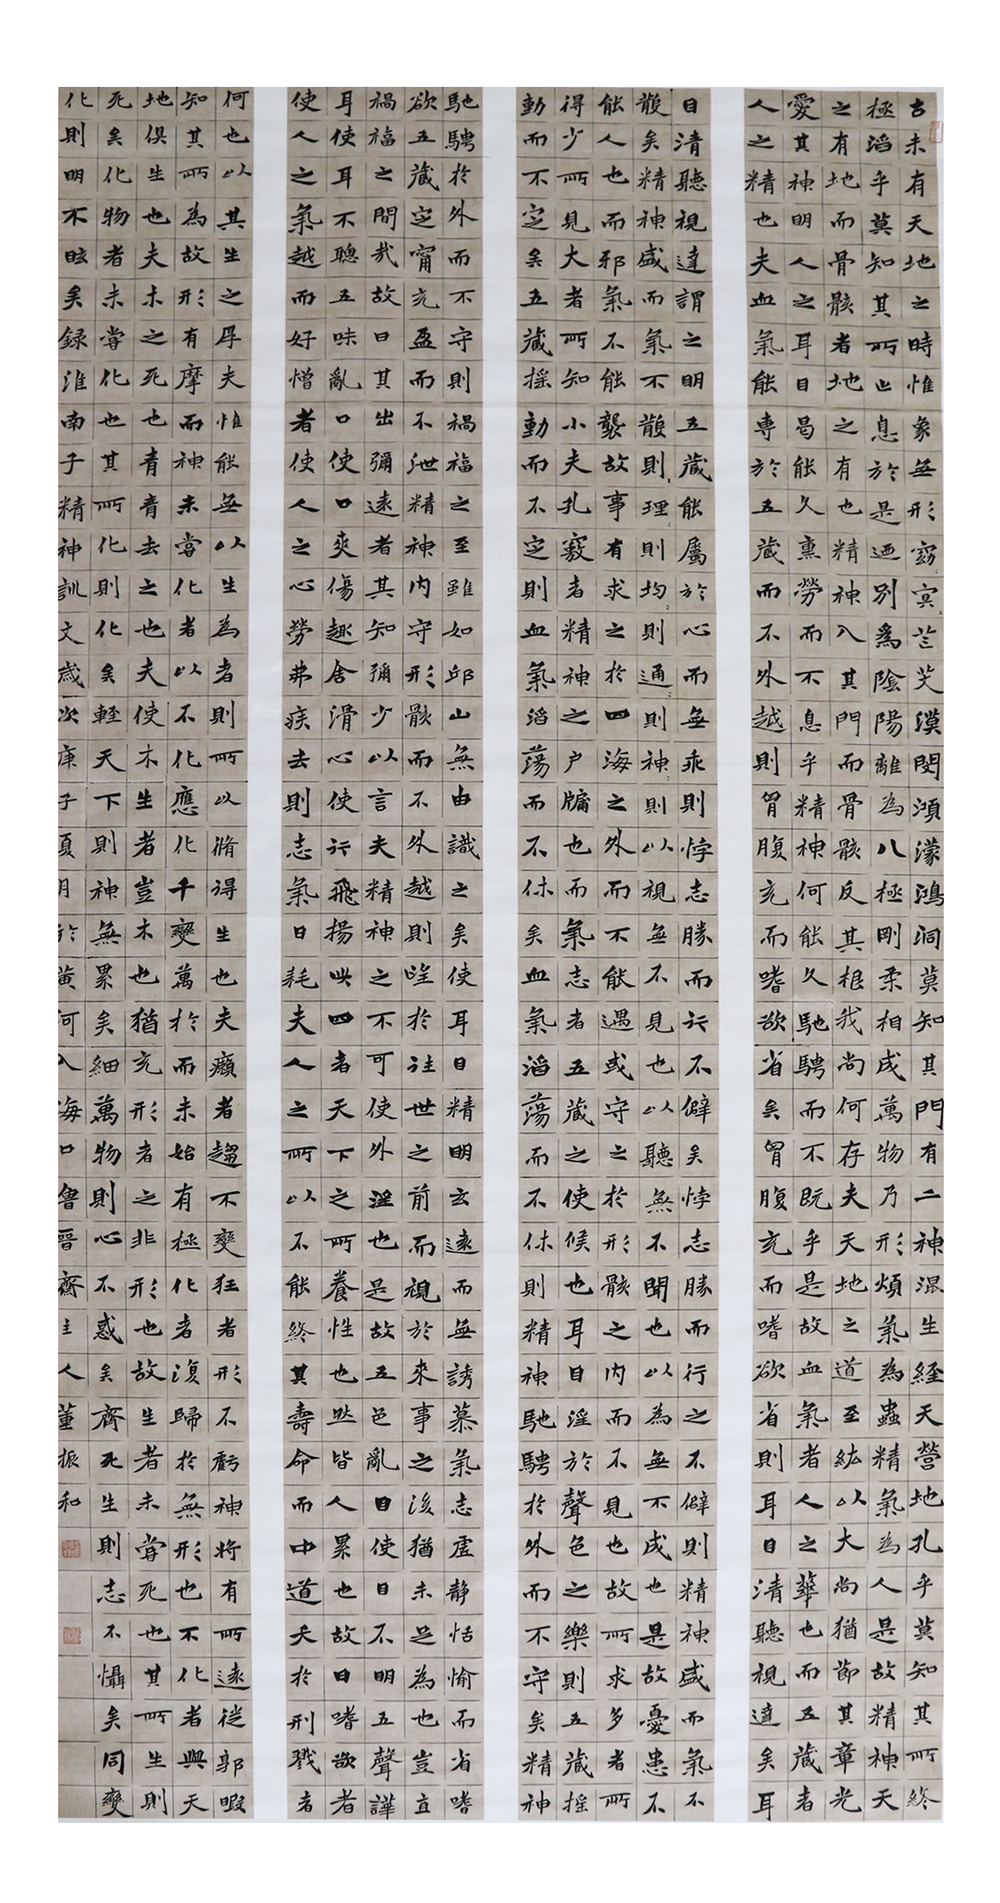 古未有天地之時惟象無形窈冥芒芠漠閔澒濛鴻洞莫知其門有二神混生經天營地孔乎莫知其所終
極滔乎莫知其所止息於是迺別為陰陽離為八極剛柔相成萬物乃形煩氣為蟲精氣為人是故精神天
之有地而骨骸者地之有也精神入其門而骨骸反其根我尚何存夫天地之道至紘以大尚猶節其章光
愛其神明人之耳目曷能久熏勞而不息乎精神何能久馳騁而不既乎是故血氣者人之華也而五藏者
人之精也夫血氣能專於五藏而不外越則胷腹充而嗜欲省矣胷腹充而嗜欲省則耳目清聽視達矣耳
目清聽視達謂之明五藏能屬於心而無乖則悖志勝而行不僻矣悖志勝而行之不僻則精神盛而氣不
散矣精神盛而氣不散則理則均則通則神則以視無不見也以聽無不聞也以為無不成也是故憂患不
能人也而邪氣不能襲故事有求之於四海之外而不能遇或守之於形骸之內而不見也故所求多者所
得少所見大者所知小夫孔竅者精神之戶牖也而氣志者五藏之使候也耳目淫於聲色之樂則五藏搖
動而不定矣五藏搖動而不定則血氣滔蕩而不休矣血氣滔蕩而不休則精神馳騁於外而不守矣精神
馳騁於外而不守則禍福之至雖如邱山無由識之矣使耳目精明玄達而無誘慕氣志虛靜恬愉而省嗜
欲五藏定甯充盈而不泄精神內守形骸而不外越則望於往世之前而視於來事之後猶未足為也豈直
禍福之間哉故曰其出彌遠者其知彌少以言夫精神之不可使外淫也是故五色亂目使目不明五聲譁
耳使耳不聰五味亂口使口爽傷趣舍滑心使行飛揚此四者天下之所養性也然皆人累也故曰嗜欲者
使人之氣越而好憎者使人之心勞弗疾去則志氣日耗夫人之所以不能終其壽命而中道夭於刑戮者
何也以其生之厚夫惟能無以生為者則所以脩得生也夫癩者趨不變狂者形不虧神將有所遠徙郭暇
知其所為故形有摩而神未嘗化者以不化應化千變萬於而未始有極化者復歸於無形也不化者與天
地俱生也夫木之死也青青去之也夫使木生者豈木也猶充形者之非形也故生者未嘗死也其所生則
死矣化物者未嘗化也其所化則化矣輕天下則神無累矣細萬物則心不惑矣齊死生則志不懾矣同變
化則明不眩矣錄淮南子精神訓文歲次庚子夏月於黃河入海口魯晉齋主人董振和